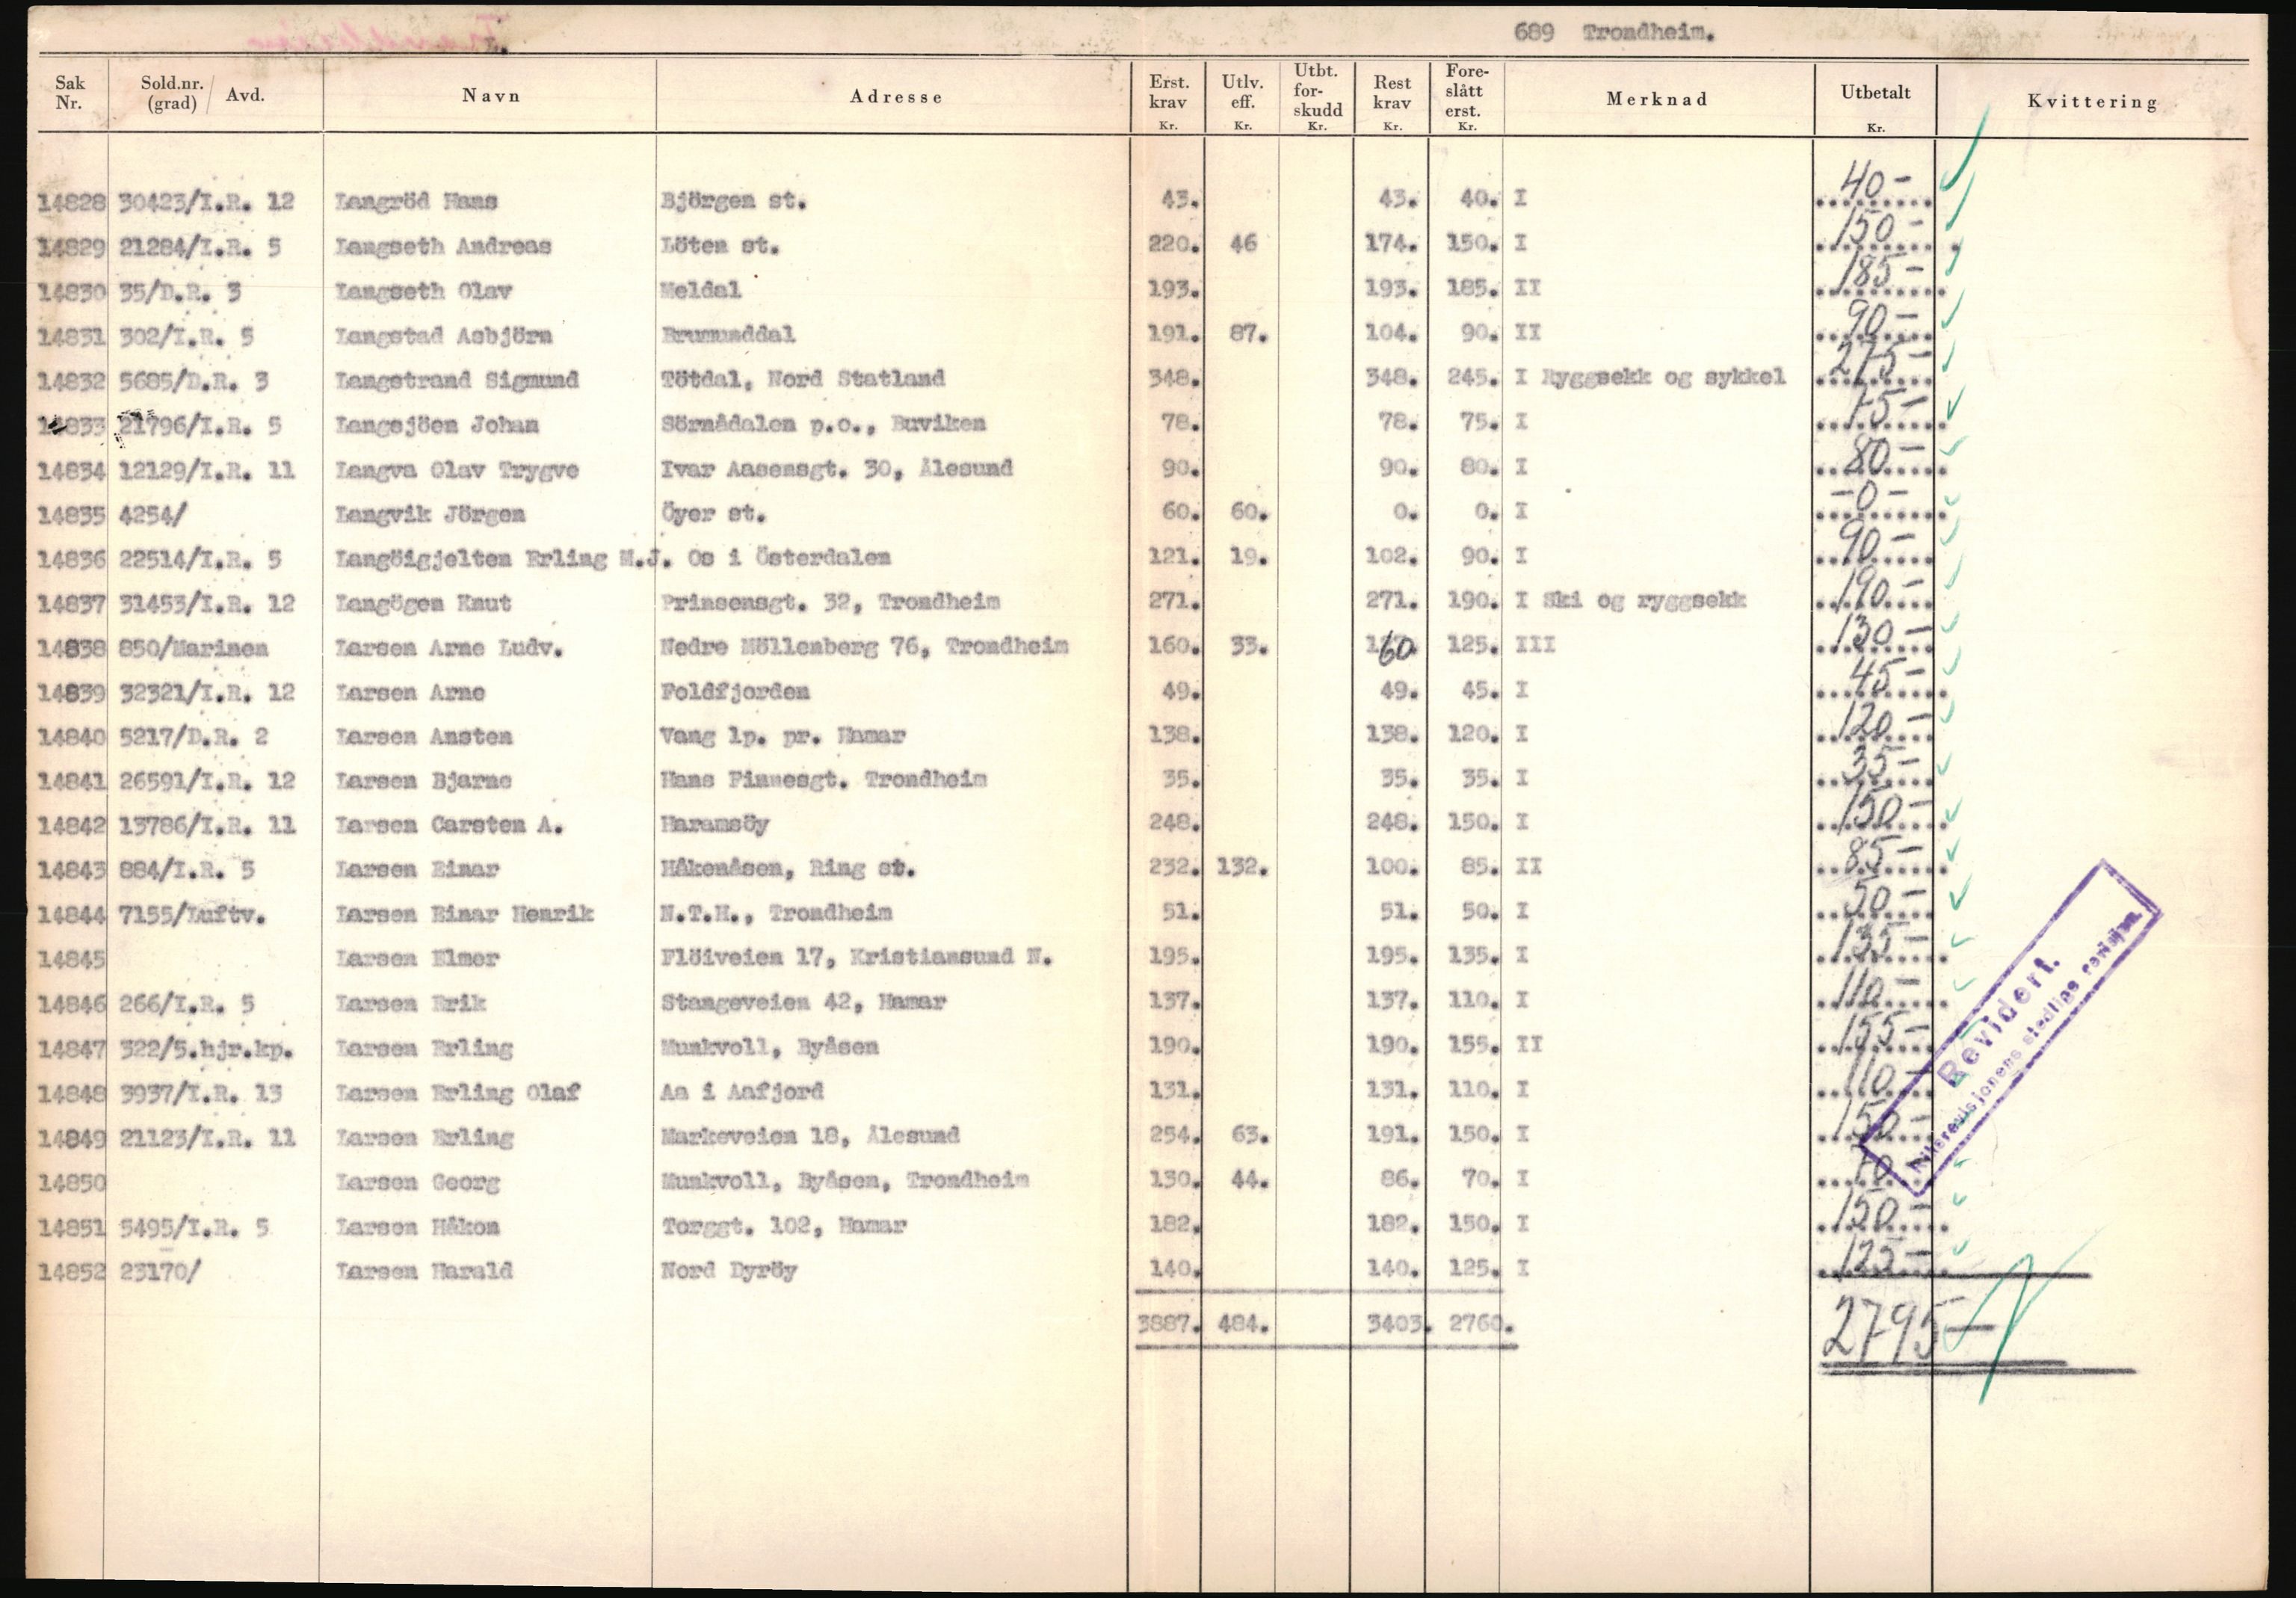 L.
689 Trondheim.
Sak Nr. Sold.nr. (grad) / Avd. Navn Adresse Erst. krav Kr. Utlv. eff. Kr. Utbt. for- skudd Kr. Rest krav Kr. Fore- slått erst. Kr. Merknad Utbetalt Kr. Kvittering
14828 30423/I.R. 12 Langröd Hans Björgen st. 43. 43. 40. I 40-
14829 21284/I.R. 5 Langseth Andreas Löten st. 220. 46 174. 150. I 150-
14830 35/D.R. 3 Langseth Olav Meldal 193. 193. 185. II 185-
14831 302/I.R. 5 Langstad Asbjörn Brumunddal 191. 87. 104. 90. II 90-
14832 5685/D.R. 3 Langstrand Sigmund Tötdal, Nord Statland 348. 348. 245. I Ryggsekk og sykkel 275-
14833 21796/I.R. 5 Langsjöen Johan Sörnådalen p.o., Buviken 78. 78. 75. I 75-
14834 12129/I.R. 11 Langva Olav Trygve Ivar Aasensgt. 30, Ålesund 90. 90. 80. I 80-
14835 4254/ Langvik Jörgen Öyer st. 60. 60. 0. 0. I -0-
14836 22514/I.R. 5 Langöigjelten Erling M.J. Os i Österdalen 121. 19. 102. 90. I 90-
14837 31453/I.R. 12 Langögen Knut Prinsensgt. 32, Trondheim 271. 271. 190. I Ski og ryggsekk 190-
14838 850/Marinen Larsen Arne Ludv. Nedre Möllenberg 76, Trondheim 160. 33. 160 125. III 130-
14839 32321/I.R. 12 Larsen Arne Foldfjorden 49. 49. 45. I 45-
14840 5217/D.R. 2 Larsen Ansten Vang lp. pr. Hamar 138. 138. 120. I 120-
14841 26591/I.R. 12 Larsen Bjarne Hans Finnesgt. Trondheim 35. 35. 35. I 35-
14842 13786/I.R. 11 Larsen Carsten A. Haramsöy 248. 248. 150. I 150-
14843 884/I.R. 5 Larsen Einar Håkenåsen, Ring st. 232. 132. 100. 85. II 85-
14844 7155/Luftv. Larsen Einar Henrik N.T.H., Trondheim 51. 51. 50. I 50-
14845 Larsen Elmer Flöiveien 17, Kristiansund N. 195. 195. 135. I 135-
14846 266/I.R. 5 Larsen Erik Stangeveien 42, Hamar 137. 137. 110. I 110-
14847 322/5.hjr.kp. Larsen Erling Munkvoll, Byåsen 190. 190. 155. II 155-
14848 3937/I.R. 13 Larsen Erling Olaf Aa i Aafjord 131. 131. 110. I 110-
14849 21123/I.R. 11 Larsen Erling Markeveien 18, Ålesund 254. 63. 191. 150. I 150-
14850 Larsen Georg Munkvoll, Byåsen, Trondheim 130. 44. 86. 70. I 70-
14851 5495/I.R. 5 Larsen Håkon Torggt. 102, Hamar 182. 182. 150. I 150-
14852 23170/ Larsen Harald Nord Dyröy 140. 140. 125. I 125-
3887. 484. 3403. 2760. 2795-
Revidert.
stedlige revisjon.